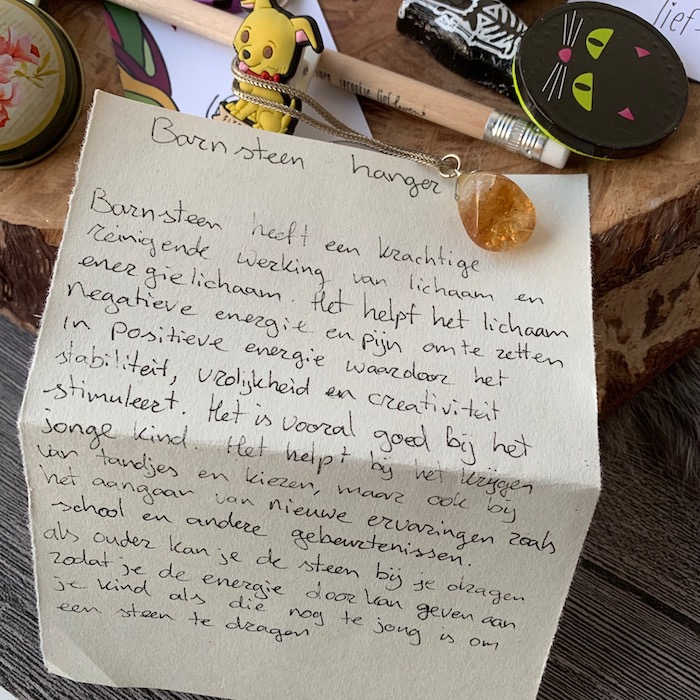 lief
Barnsteen hanger
Barnsteen heeft een krachtige
reinigende werking van lichaam en
energielichaam. Het helpt het lichaam
negatieve energie en pijn om te zetten
in positieve energie waardoor het
stabiliteit, vrolijkheid en creativiteit
stimuleert. Het is vooral goed bij het
jonge kind. Het helpt bij het krijgen
van tandjes en kiezen, maar ook bij
het aangaan van nieuwe ervaringen zoals
school en andere gebeurtenissen.
als ouder kan je de steen bij je dragen
zodat je de energie door kan geven aan
je kind als die nog te jong is om
een steen te dragen